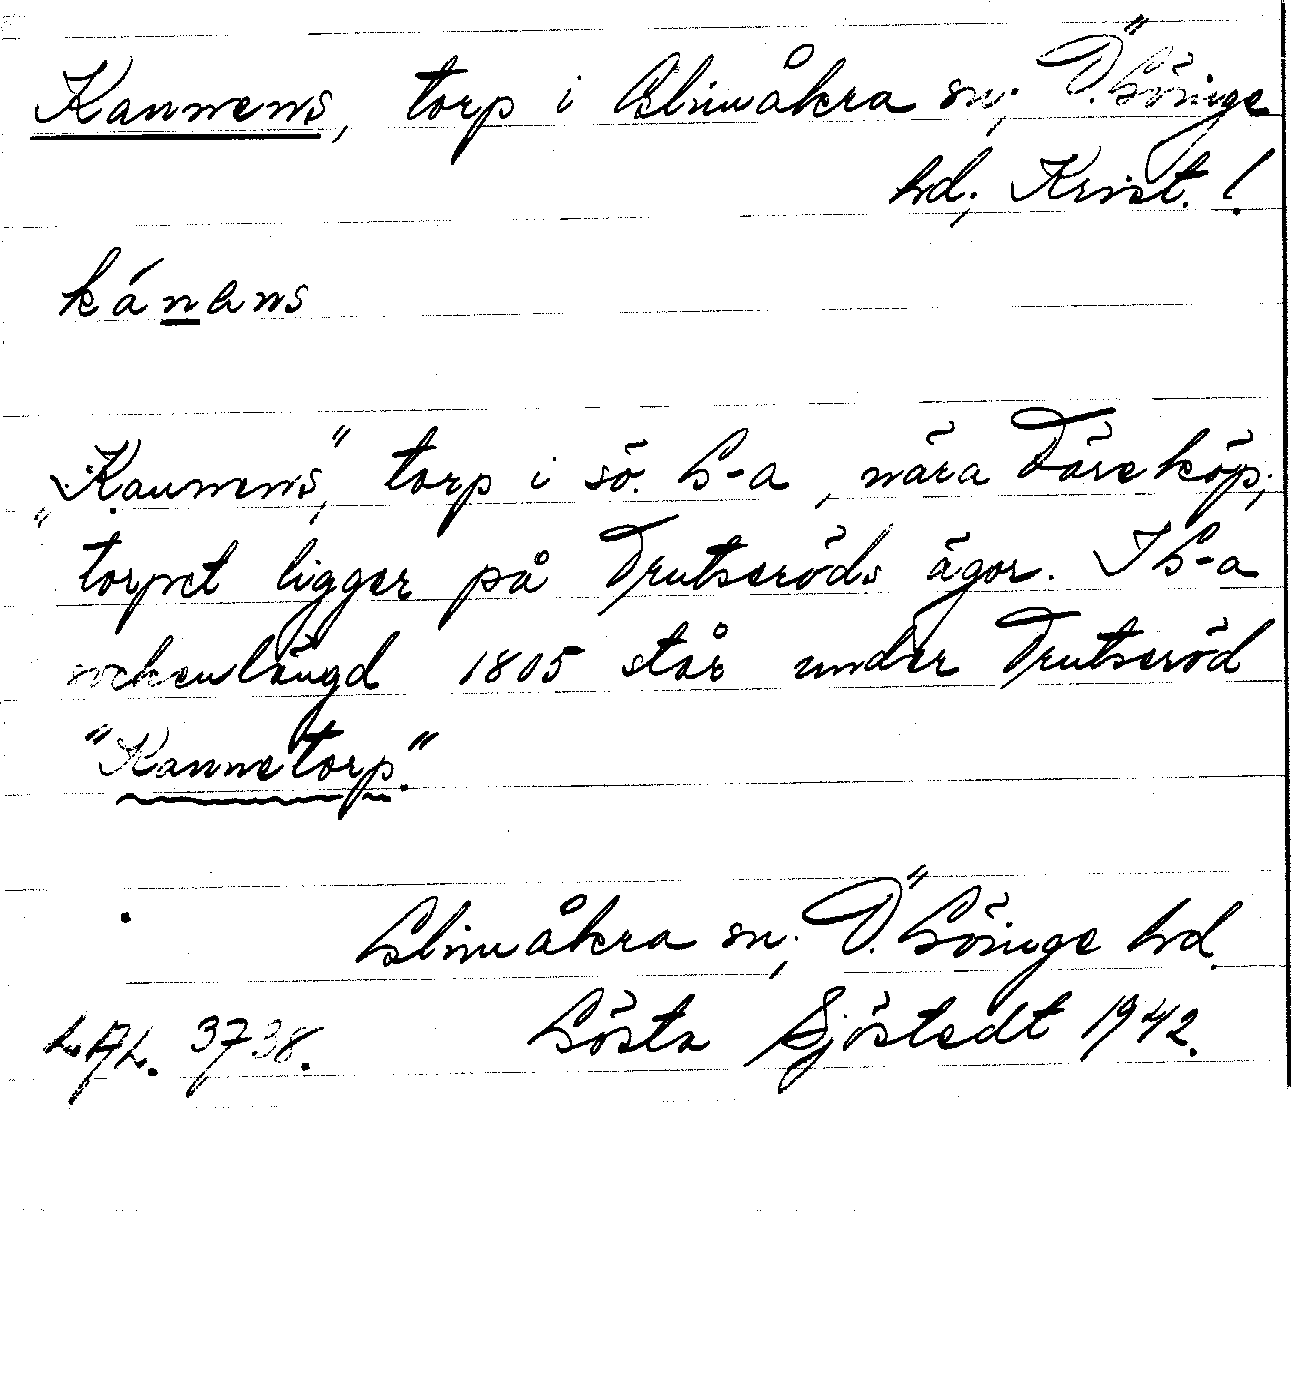 Kannens, torp i Glimåkra sn; Ö. Göinge
hd; Krist. l.
kánans
"Kannens," torp i sö. G-a, nära Töreköp;
torpet ligger på Trutseröds ägor. I G-a
sockenlängd 1805 står under Trutseröd
"Kannetorp".
Glimåkra sn; Ö. Göinge hd.
Gösta Sjöstedt 1942.
LAL. 3738.